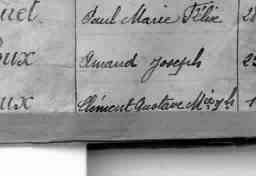 uet Paul Marie Félix 2
oux Amand Joseph 2
ux Clément Gustave Mie Jh 1